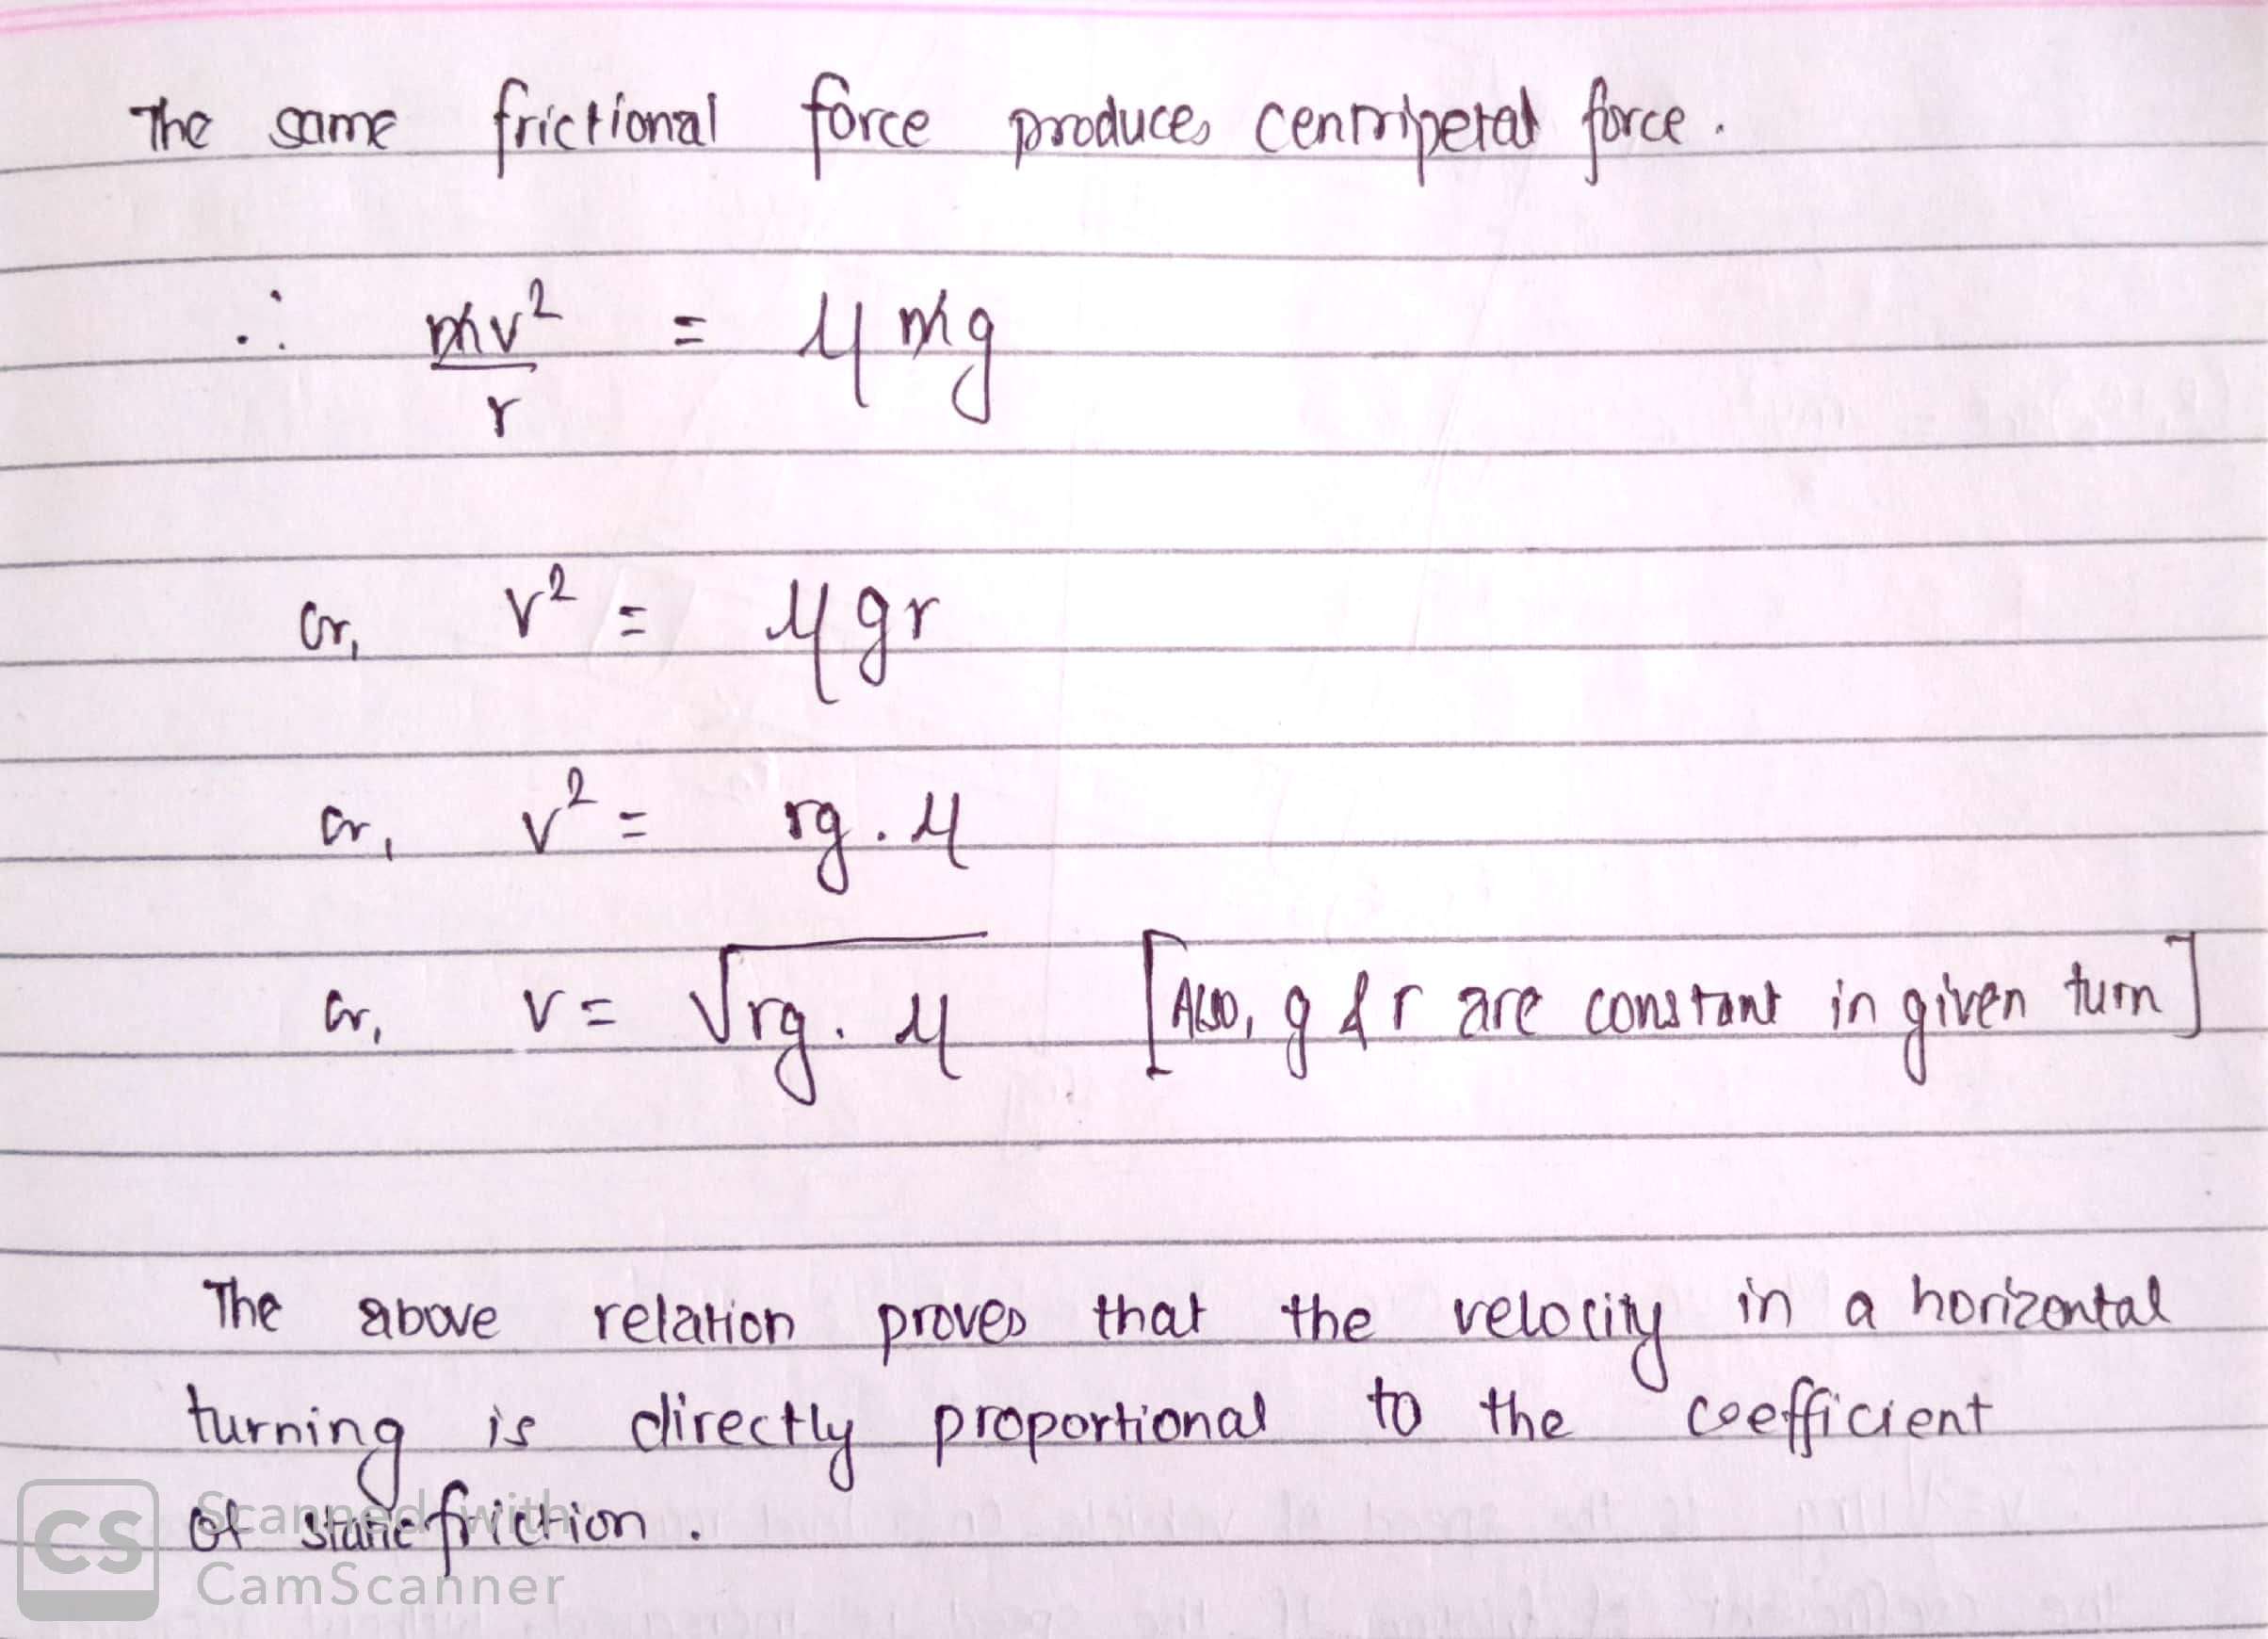 The same frictional force produces centripetal force.
∴ mv²/r = μmg
or, v² = μgr
or, v² = rg.μ
or, v = √rg.μ [Also, g & r are constant in given turn]
The above relation proves that the velocity in a horizontal
turning is directly proportional to the coefficient
of static friction.
CS Scanned with
CamScanner